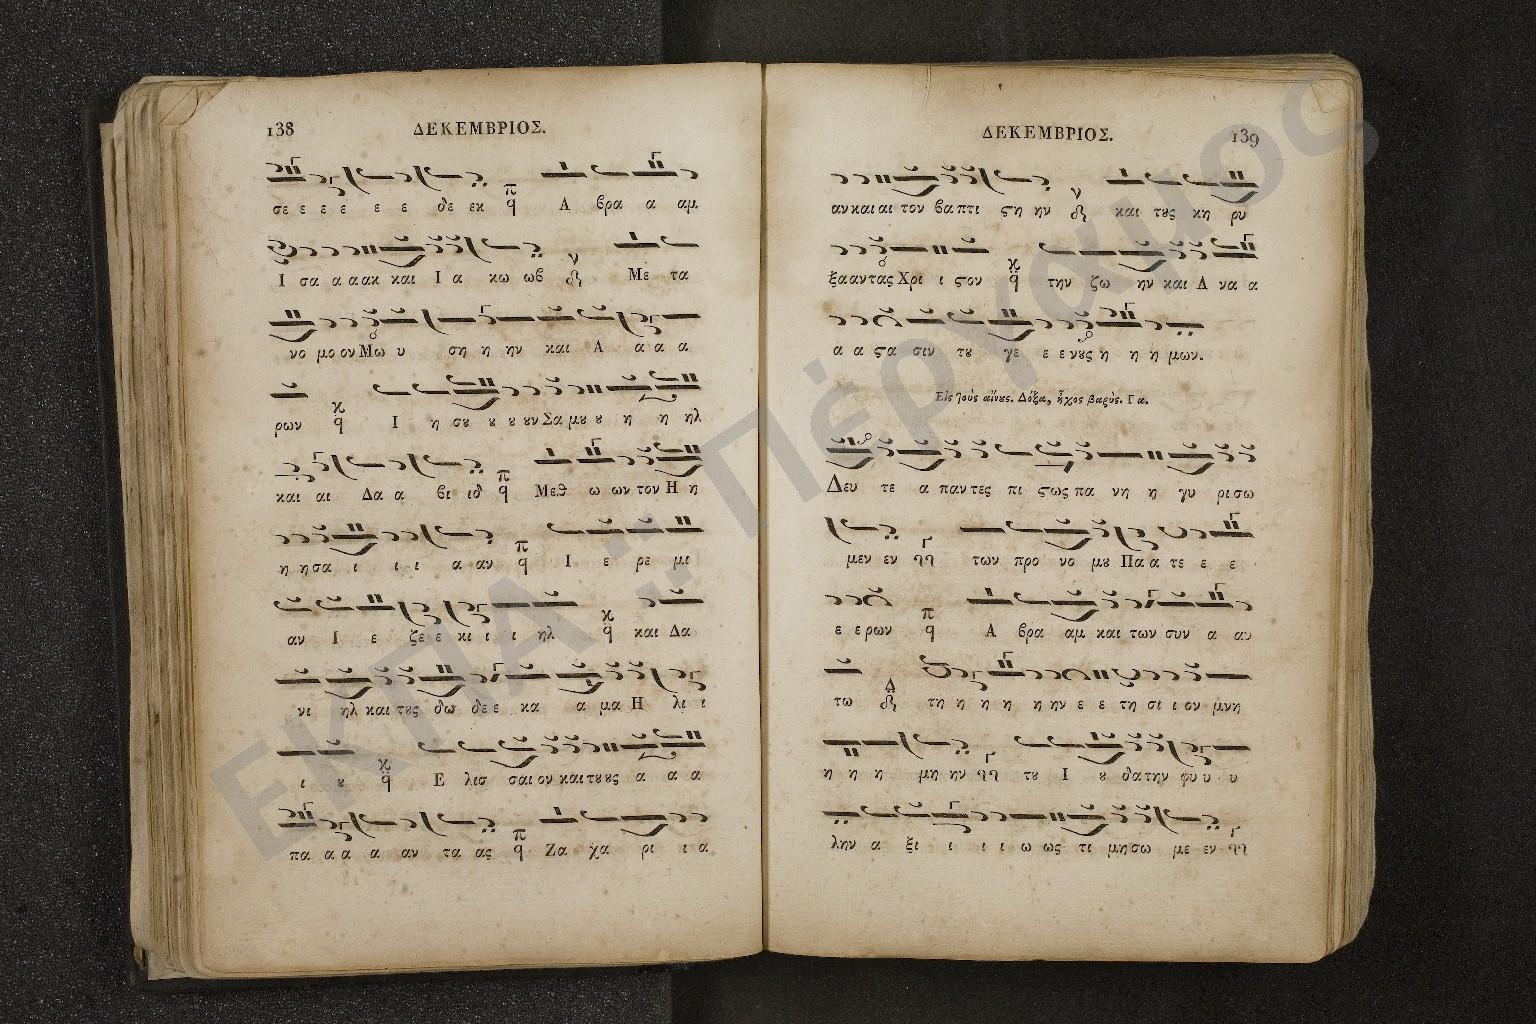 138
ΔΕΚΕΜΒΡΙΟΣ.
σε ε ε ε ε ε δε εκ Α βρα α αμ
Ι σα α αακ και Ι α κω ωβ Με τα
νο μο ον Μω υ ση η ην και Α α α α
ρων Ι η σȣ ȣ ȣ ȣν Σα μȣ ȣ η η ηλ
και αι Δα α βι ιδ Μεθ ω ων τον Η η
η ησα ι ι ι α αν Ι ε ρε μι
αν Ι ε ζε ε κι ι ι ηλ και Δα
νι ηλ και τȣς δω δε ε κα α μα Η λι ι
ι ȣ Ε λισ σαι ον και τȣȣς α α α
πα α α α αν τα ας Ζα χα ρι ι α
ΔΕΚΕΜΒΡΙΟΣ.
139
αν και αι τον βα πτι ϛη ην και τȣς κη ρυ
ξα αντας Χρι ι ϛον την ζω ην και Α να α
α α ϛα σιν τȣ γε ε ε νȣς η η η μων.
Εἰς τοὺς αἴνȣς. Δόξα, ἦχος βαρύς. Γα.
Δευ τε α παντες πι ϛως πα νη η γυ ρι σω
μεν εν των προ νο μȣ Πα α τε ε ε
ε ε ρων Α βρα αμ και των συν α αυ
τω τη η η η η ην ε ε τη σι ι ον μνη
η η η μη ην τȣ Ι ȣ δα την φυ υ υ
λην α ξι ι ι ι ω ως τι μησω με εν
ΕΚΠΑ "Πέργαμος